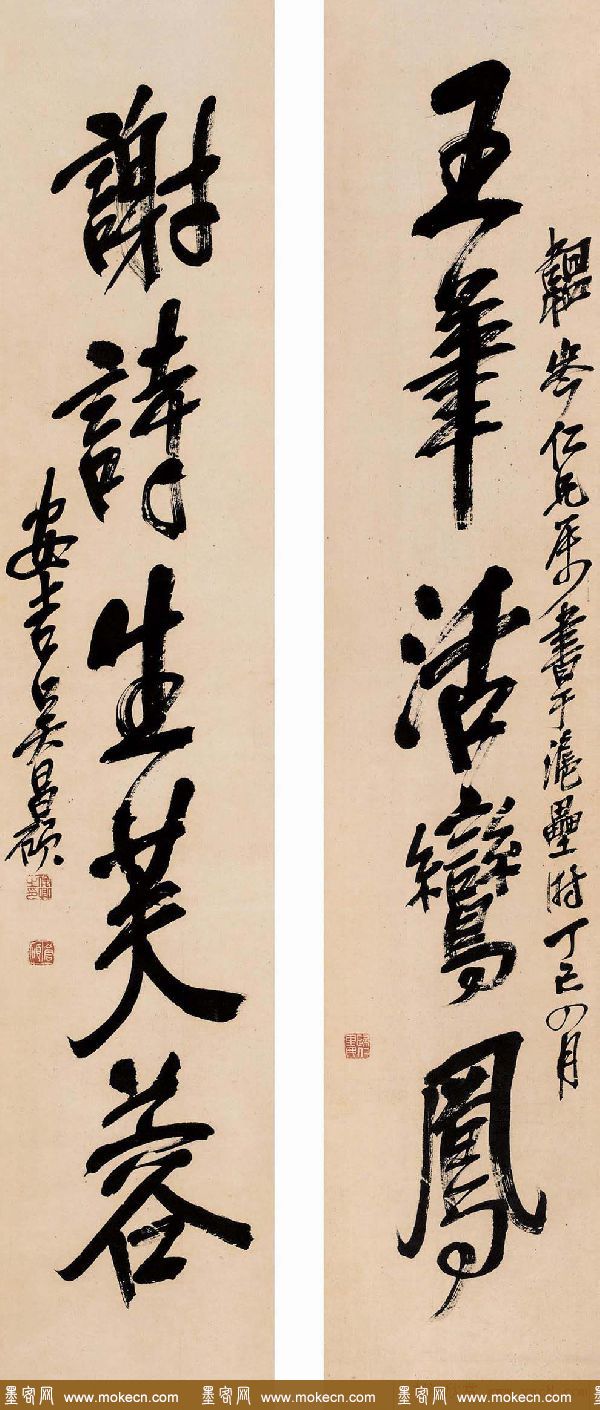 王筆活鸞鳳
韞岑仁兄属書于滬壘時丁巳四月
謝詩生芙蓉
安吉吳昌碩
墨客网 www.mokecn.com 墨客网 www.mokecn.com 墨客网 www.mokecn.com